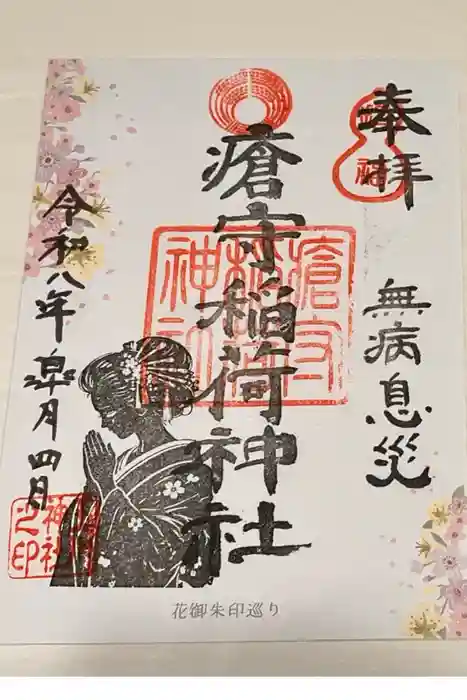 奉拝
無病息災
瘡守稲荷神社
瘡守
稲荷
神社
令和八年皐月四日
神社
之印
花御朱印巡り